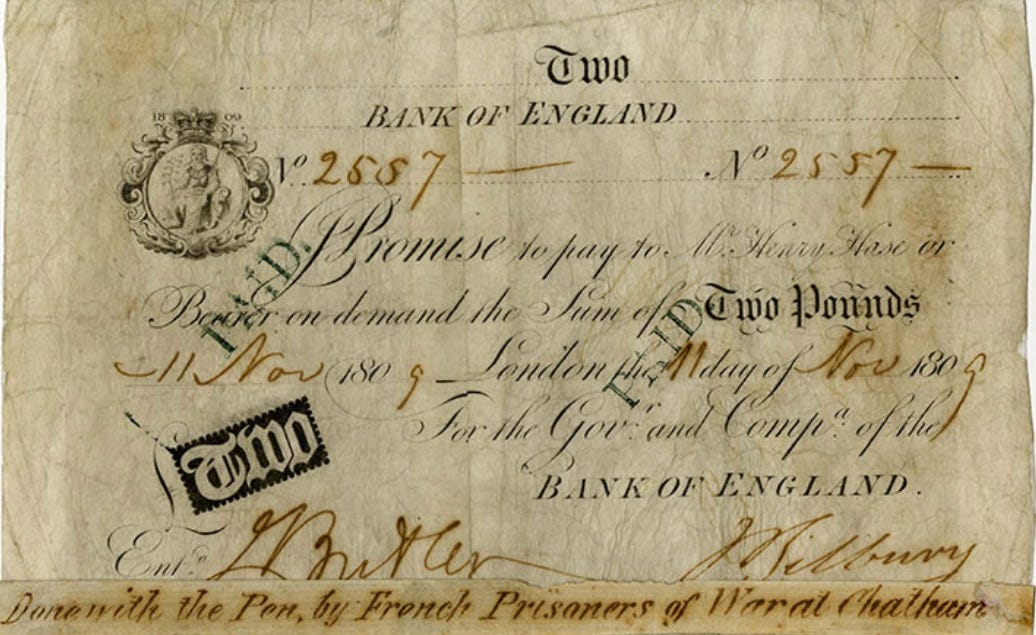 Two
BANK OF ENGLAND
18 09
No 2557 — No 2557 —
I Promise to pay to Mr. Henry Hase or
Bearer on demand the Sum of Two Pounds
11 Nov 1809 London the 11 day of Nov 1809
For the Govr. and Compa. of the
BANK OF ENGLAND.
PAID.
PAID
Two
Entd. Butler
Done with the Pen, by French Prisoners of War at Chatham